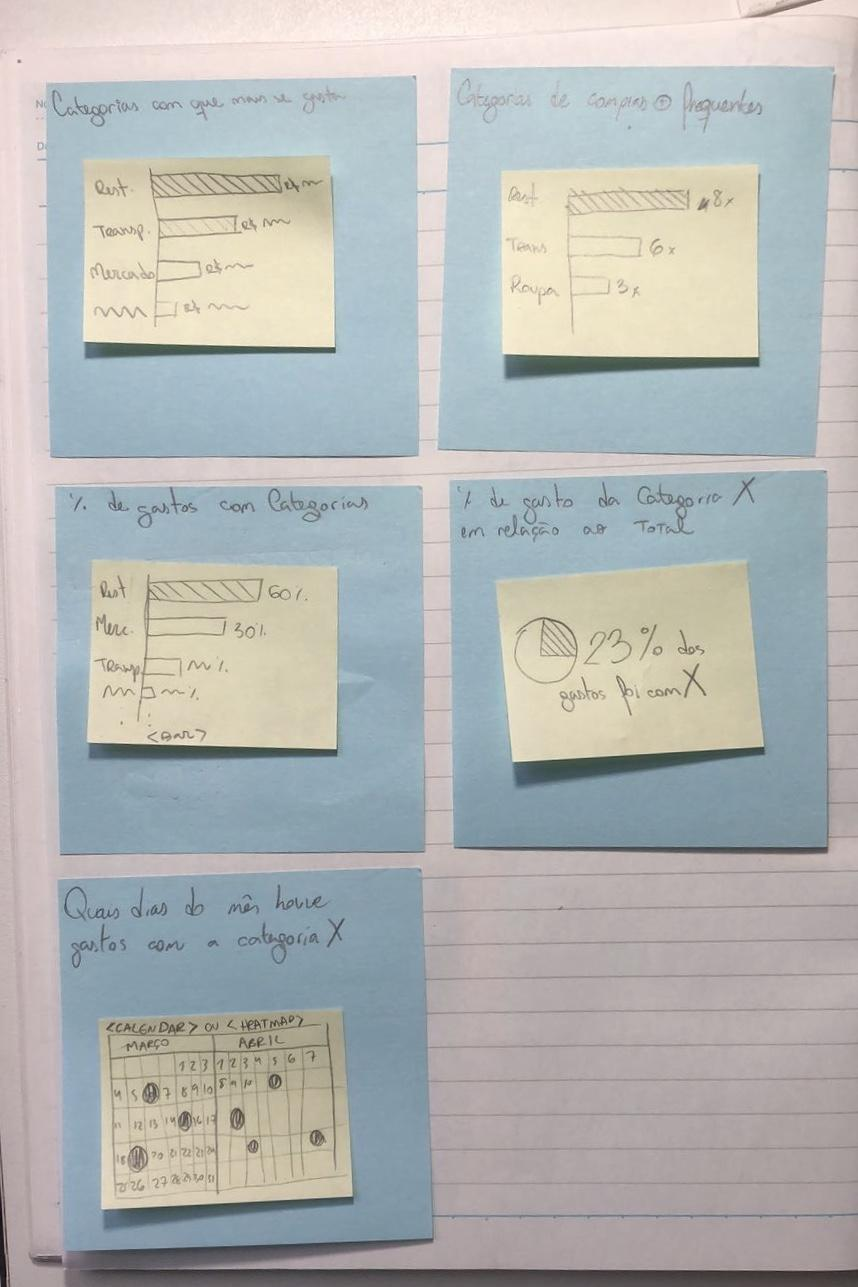 Categorias com que mais se gasta
Rest. R$
Transp. R$
Mercado R$
R$
Categorias de compras + frequentes
Rest 8x
Trans 6x
Roupa 3x
% de gastos com Categorias
Rest 60%
Merc. 30%
Transp %
%
<BAR>
% de gasto da Categoria X
em relação ao TOTAL
23% dos
gastos foi com X
Quais dias do mês houve
gastos com a categoria X
<CALENDAR> OU <HEATMAP>
MARÇO ABRIL
1 2 3 1 2 3 4 5 6 7
4 5 7 8 9 10 8 9 10
11 12 13 14 16 17
18 20 21 22 23 24
25 26 27 28 29 30 31